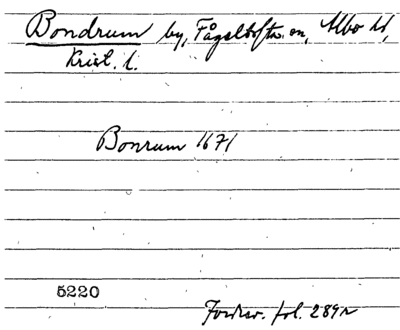 Bondrum by, Fågeltofta sn, Albo hd,
Krist. l.
Bonrum 1671
5220
Jordrev. fol. 289v